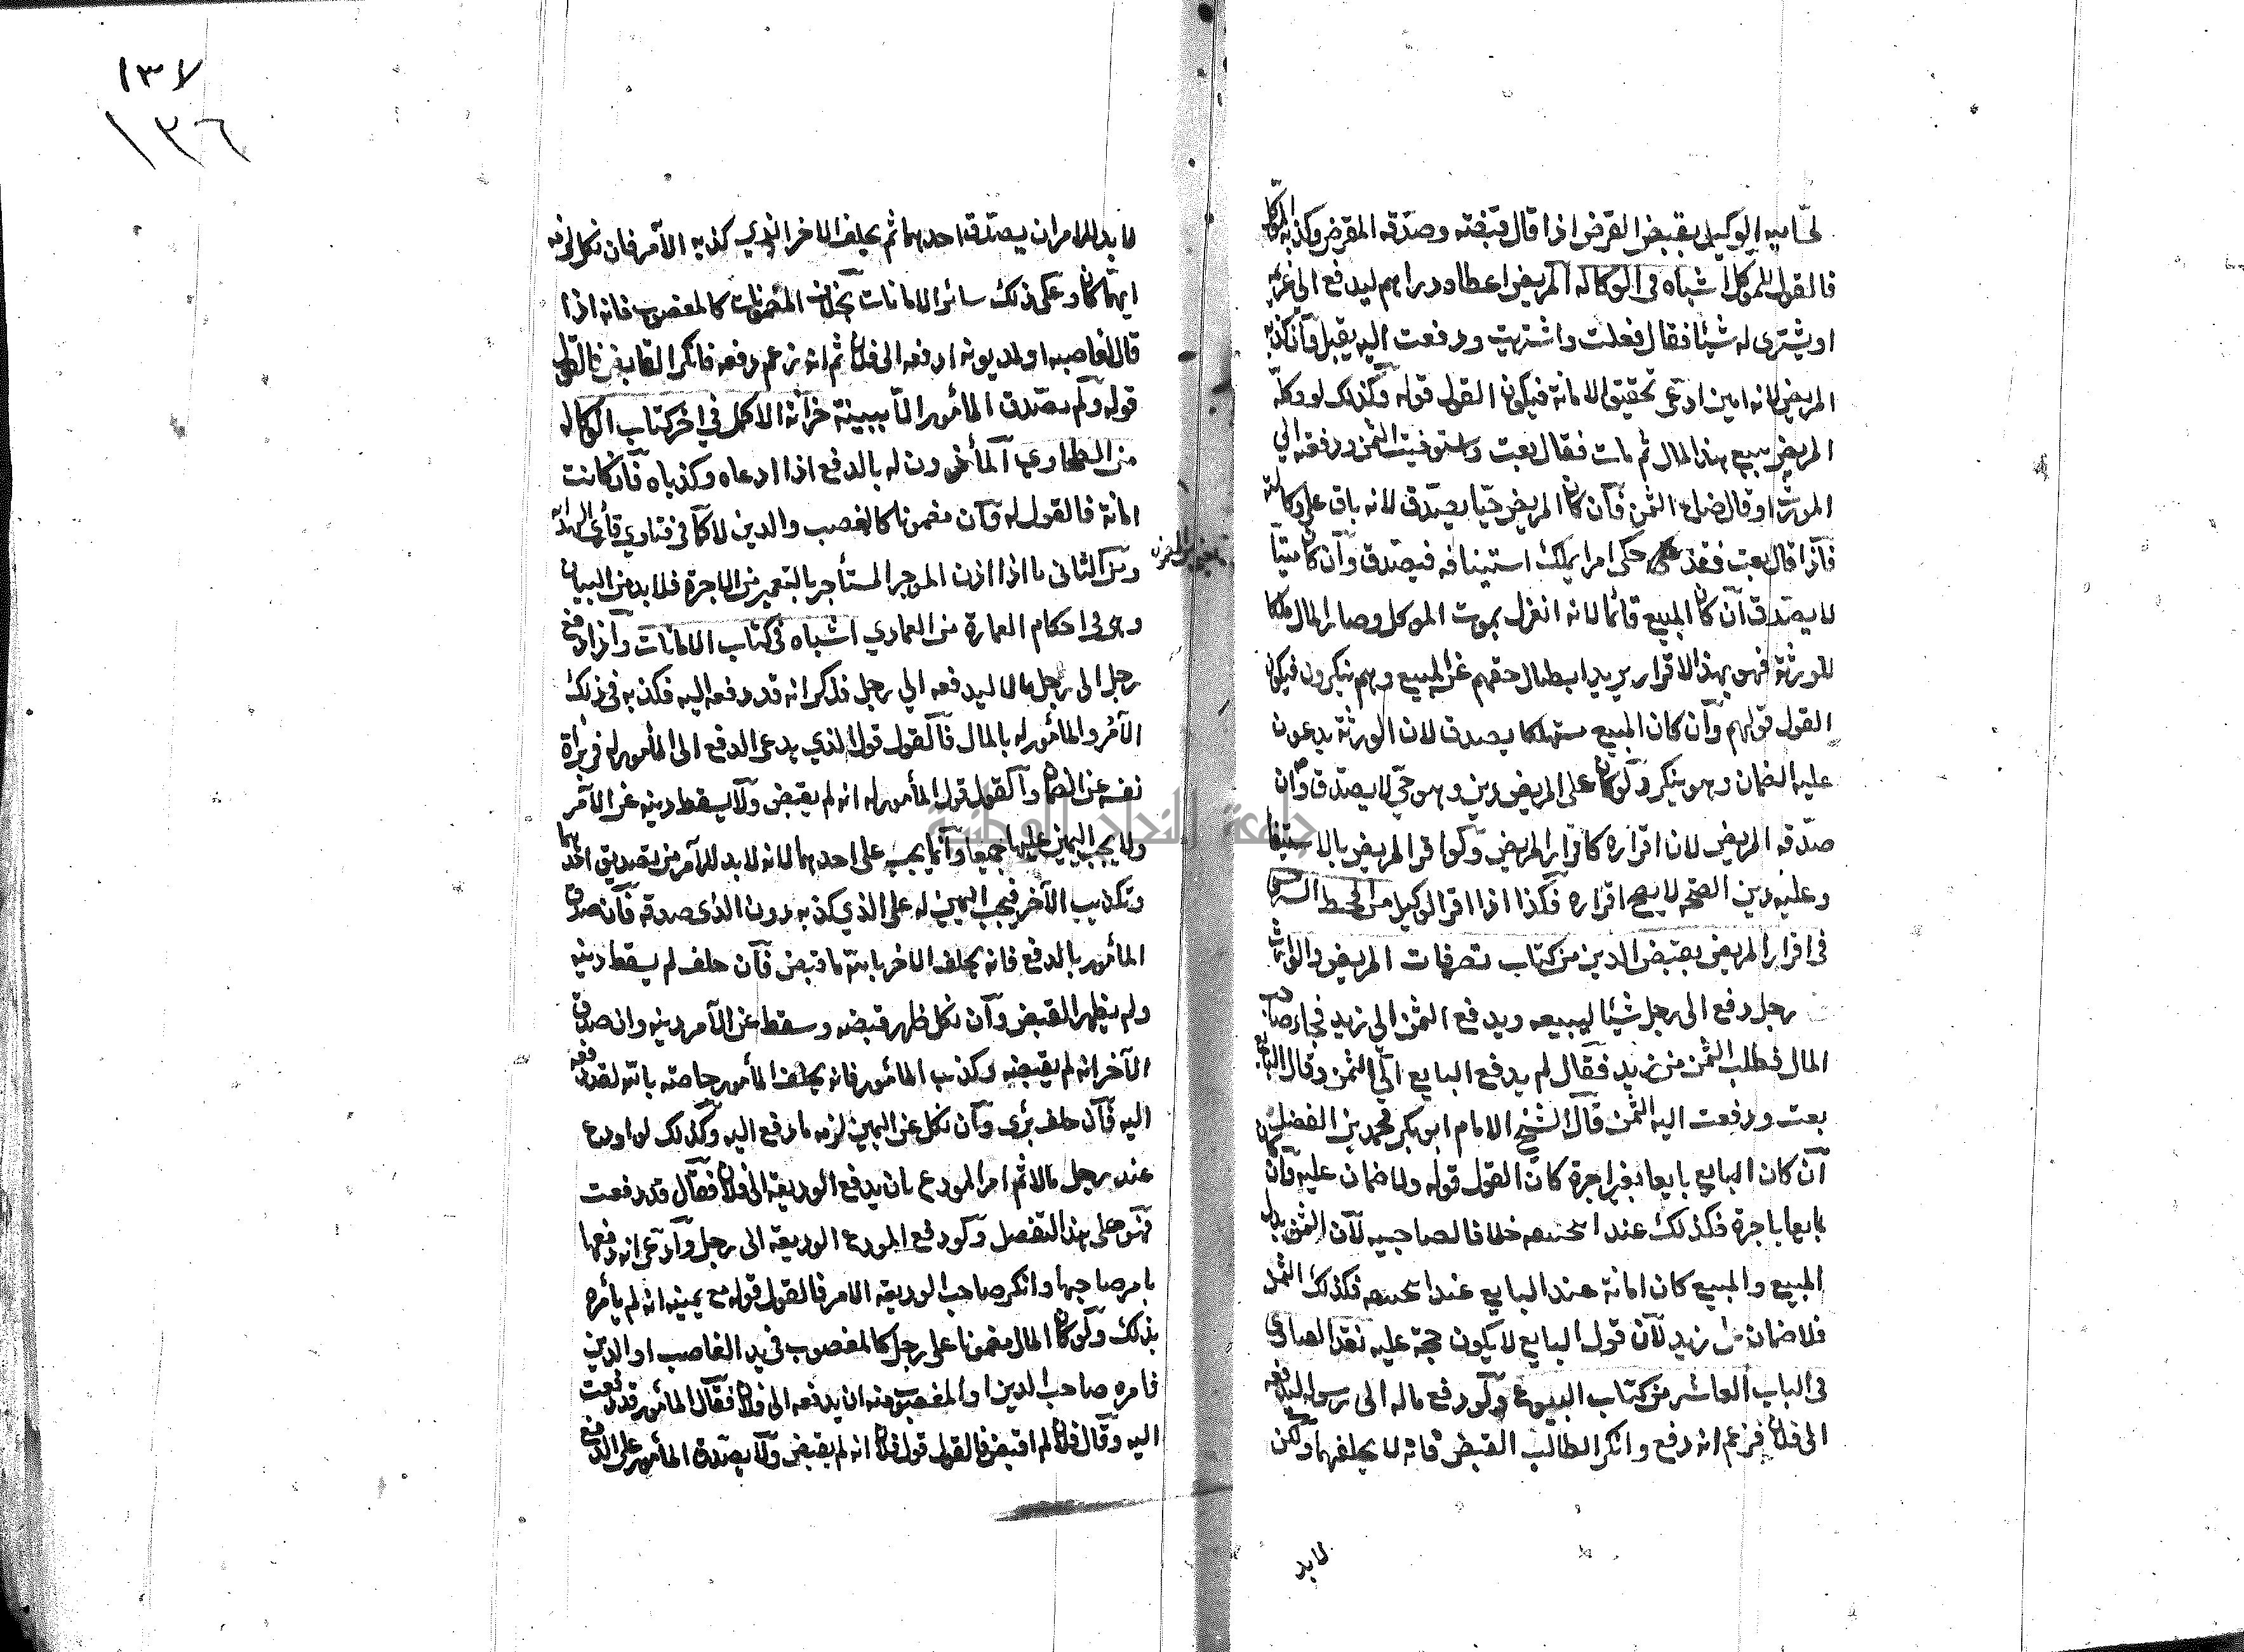 الوكيل بقبض القرض اذا قال قبضته وصدقه المقرض وكذبه الموكل
فالقول للموكل اشباه في الوكالة المريض اعطاه دراهم ليدفع الي غريمه
او يشتري له شيئا فقال فعلت واشتريت ودفعت اليه يقبل وان كذبه
المريض لانه امين ادعى تحقيق الامانة فيكون القول قوله وكذلك لو وكله
المريض ببيع هذا المال ثم مات فقال بعت واستوفيت الثمن ودفعته الي
المورث او قال ضاع الثمن فان كان المريض حيا يصدق لانه باق على وكالته
فاذا قال بعت فقد حكى امرا يملك استينافه فيصدق وان كان ميتا
لا يصدق ان كان المبيع قائما لانه انعزل بموت الموكل وصار المال ملكا
للورثة فهو بهذا الاقرار يريد ابطال حقهم عن المبيع وهم ينكرون فيكون
القول قولهم وان كان المبيع مستهلكا يصدق لان الورثة يدعون
عليه الضمان وهو ينكر ولو كان على المريض دين وهو حي لا يصدق وان
صدقه المريض لان اقراره كاقرار المريض ولو اقر المريض بالاستيفا
وعليه دين الصحة لا يصح اقراره فكذا اذا اقر الوكيل من محيط السرخسي
في اقرار المريض بقبض الدين من كتاب تصرفات المريض والوارث
رجل دفع الى رجل شيئا ليبيعه ويدفع الثمن الي زيد فجاء صاحب
المال فطلب الثمن من زيد فقال لم يدفع البايع الي الثمن وقال البايع
بعت ودفعت اليه الثمن قال الشيخ الامام ابو بكر محمد بن الفضل
ان كان البايع بايعا بغير اجرة كان القول قوله ولا ضمان عليه وان كان
بايعا باجرة فكذلك عند ابي حنيفه خلافا لصاحبيه لان الثمن بدل
المبيع والمبيع كان امانة عند البايع عند ابي حنيفه فكذلك الثمن
فلا ضمان على زيد لان قول البايع لا يكون حجة عليه نقد الفتاوي
في الباب العاشر من كتاب البيوع ولو دفع ماله الى رسوله ليدفعه
الى فلان فزعم انه دفع وانكر الطالب القبض فانه لا يحلفهما ولكن
لا بد
١٣٧
١٣٦
لا بد للامر ان يصدق احدهما ثم يحلف الاخر الذي كذبه الآمر فان نكل لزمه
ايهما كان وعلى ذلك سائر الامانات بخلاف المضمونات كالمغصوب فانه اذا
قال لغاصبه او لمديونه ادفعه الى فلان ثم انه زعم دفعه فانكر القابض فالقول
قوله ولم يصدق المأمور الا ببينة خزانة الاكمل في اخر كتاب الوكالة
من الطحاوي المأذون له بالدفع اذا ادعاه وكذباه فان كانت
امانة فالقول له وان مضمونا كالغصب والدين لا كما في فتاوي قارئ الهداية
ومن الثاني ما اذا اذن الموجر المستأجر بالتعمير من الاجرة فلا بد من البيان
وهو في احكام العمارة من العمادي اشباه في كتاب الامانات واذا دفع
رجل الى رجل مالا ليدفعه الي رجل فذكر انه قد دفعه اليه فكذبه في ذلك
الآمر والمأمور له بالمال فالقول قول الذي يدعى الدفع الى المأمور له في براة
نفسه عن الضمان والقول قول المأمور له انه لم يقبض ولا يسقط دينه عن الآمر
ولا يجب اليمين عليهما جميعا وانما يجب على احدهما لانه لا بد للآمر من تصديق احدهما
وتكذيب الآخر فيجب اليمين له على الذي كذبه دون الذي صدقه فان صدق
المأمور بالدفع فانه يحلف الاخر بالله ما قبض فان حلف لم يسقط دينه
ولم يظهر القبض وان نكل ظهر قبضه وسقط عن الآمر دينه وان صدق
الآخر انه لم يقبضه وكذب المأمور فانه يحلف المأمور خاصة بالله لقد دفعه
اليه فان حلف برئ وان نكل عن اليمين لزمه ما دفع اليه وكذلك لو اودع
عند رجل مالا ثم امر المودع بان يدفع الوديعة الى فلان فقال قد دفعت
فهو على هذا التفصيل ولو دفع المودع الوديعة الى رجل وادعى انه دفعها
بامر صاحبها وانكر صاحب الوديعة الامر فالقول قوله مع يمينه انه لم يأمره
بذلك ولو كان المال مضمونا على رجل كالمغصوب في يد الغاصب او الدين
فامره صاحب الدين او المغصوب منه ان يدفعه الى فلان فقال المأمور قد دفعت
اليه وقال فلان لم اقبض فالقول قول فلان انه لم يقبض ولا يصدق المأمور على الدفع
جامعة النجاح الوطنية